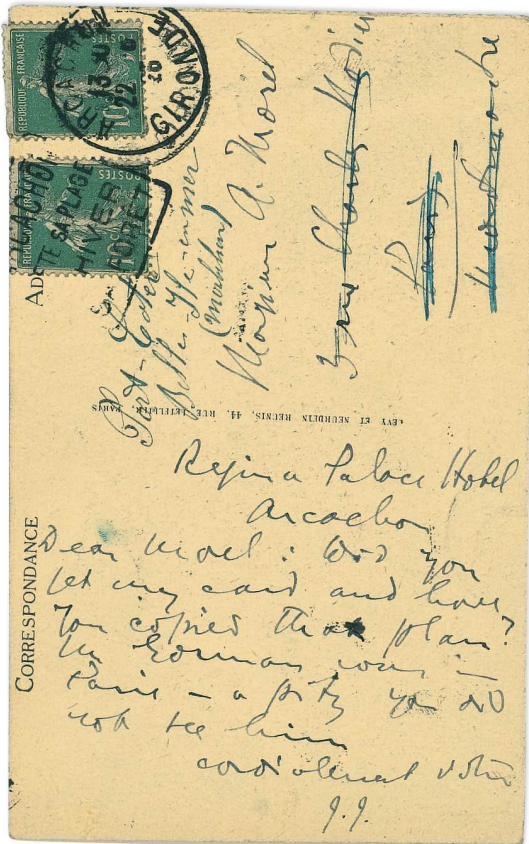 RÉPUBLIQUE FRANÇAISE
POSTES
10
ARCACHON
13
22
GIRONDE
RÉPUBLIQUE FRANÇAISE
POSTES
SA PLAGE
HIVER
FORET
Belle-Ile-en-mer
(Morbihan)
A. Morel
3 rue Charles Nodier
Paris
Montmartre
LEVY ET NEURDEIN REUNIS, 44, RUE LETELLIER, PARIS
CORRESPONDANCE
Regina Palace Hotel
Arcachon
Dear Morel: Did you
get my card and have
you copied that plan?
Mr Gorman was in
Paris — a pity you did
not see him
cordialement vôtre
J.J.